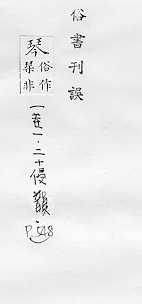 俗書刊誤
琴俗作琹非
一卷一·二十侵韻
P.548